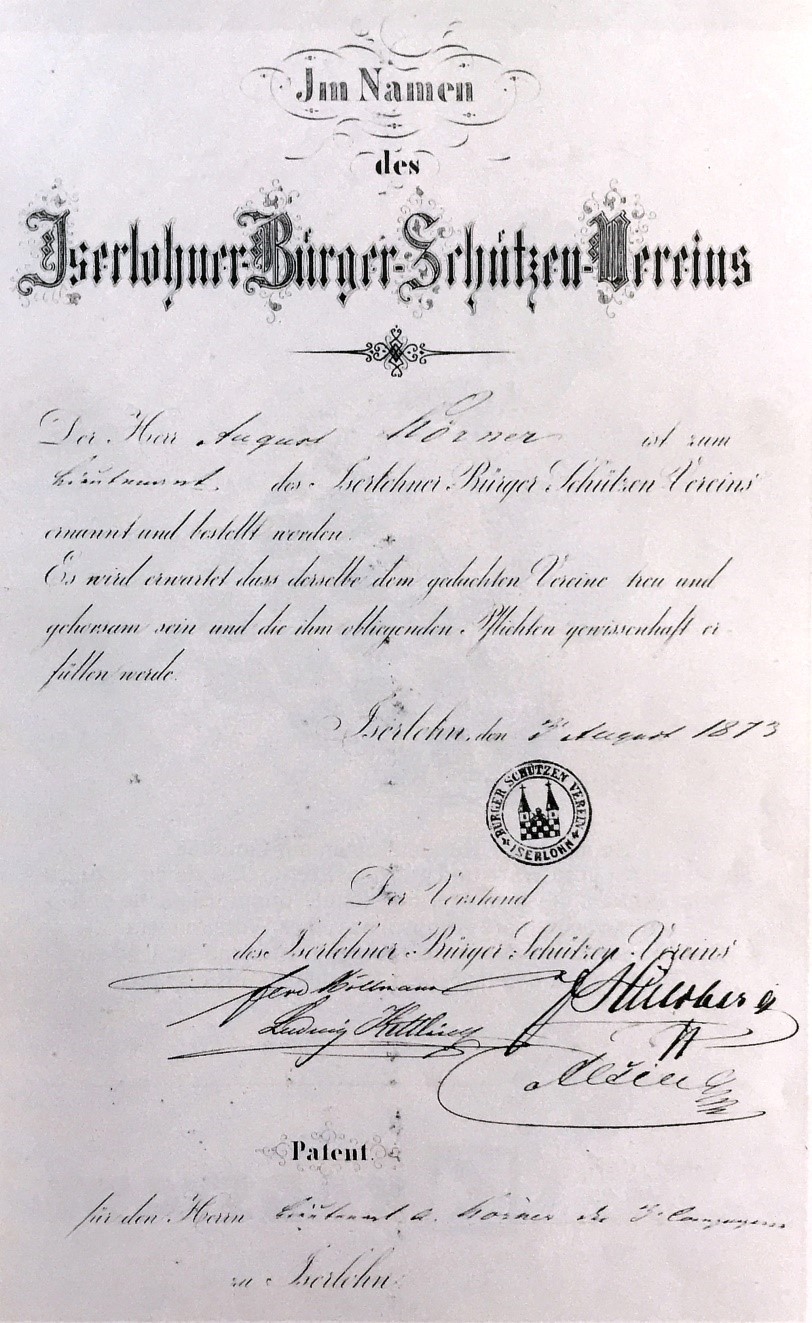 Im Namen
des
Iserlohner-Bürger-Schützen-Vereins
Der Herr August Körner ist zum
Lieutenant des Iserlohner Bürger Schützen Vereins
ernannt und bestellt worden.
Es wird erwartet dass derselbe dem gedachten Vereine treu und
gehorsam sein und die ihm obliegenden Pflichten gewissenhaft er
füllen werde.
Iserlohn, den August 1873
BÜRGER SCHÜTZEN VEREIN
ISERLOHN
Der Vorstand
des Iserlohner Bürger Schützen Vereins
Ferd Möllmann
Ludwig Kettling
Patent.
für den Herrn Lieutenant A. Körner der 3. Compagnie
zu Iserlohn.